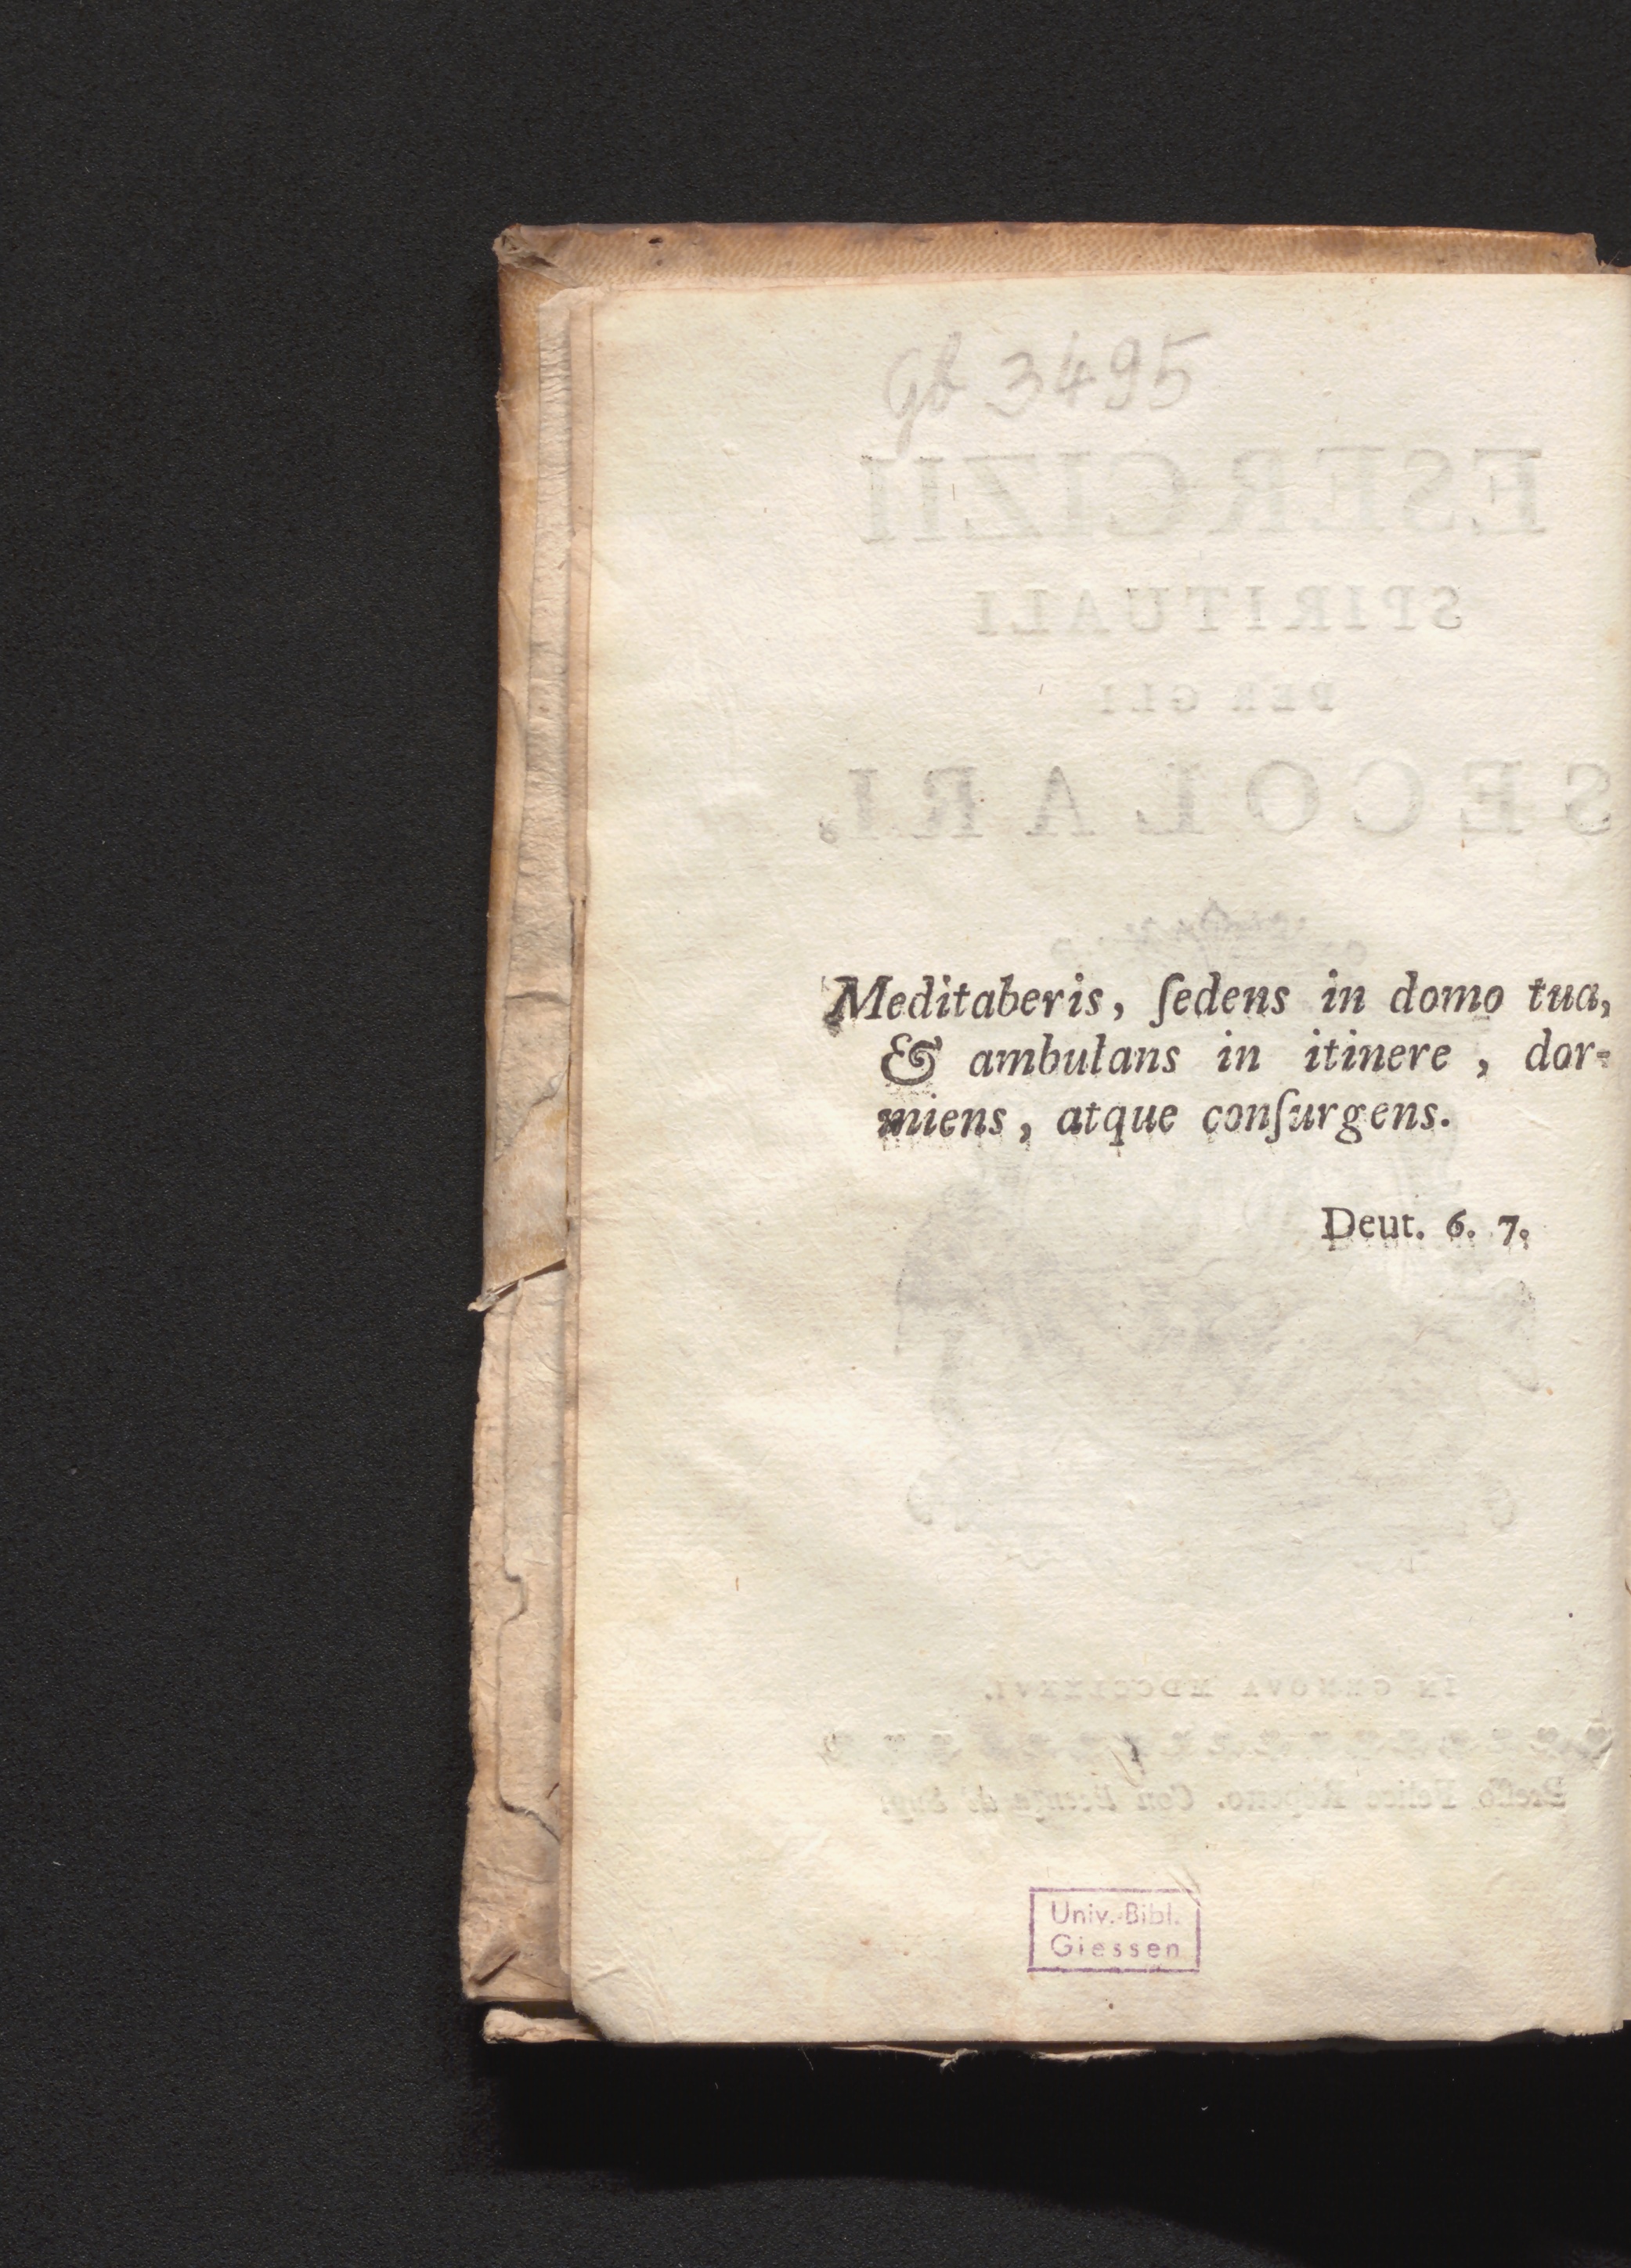 Gb 3495
Meditaberis, ſedens in domo tua,
& ambulans in itinere, dor-
miens, atque conſurgens.
Deut. 6. 7.
Univ.-Bibl.
Giessen